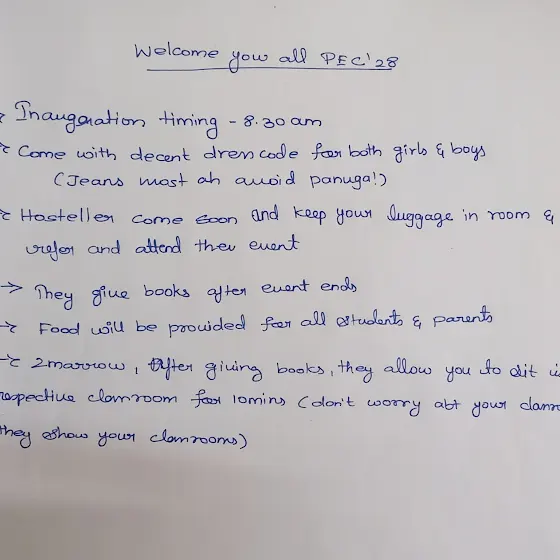 Welcome you all PEC'28
Inaugeration timing - 8.30 am
Come with decent dress code for both girls & boys
(Jeans most ah avoid panuga!)
Hosteller come soon and keep your luggage in room &
refer and attend thev event
→ They give books after event ends
→ Food will be provided for all students & parents
→ 2marrow, After giving books, they allow you to sit i
respective classroom for 10mins (don't worry abt your classr
they show your classrooms)